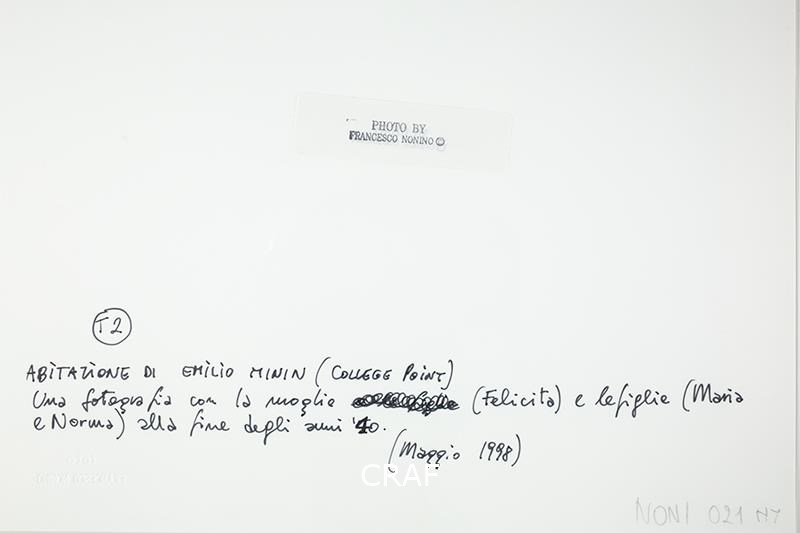 PHOTO BY
FRANCESCO NONINO ©
T2
ABITAZIONE DI EMILIO MININ (COLLEGE POINT)
Una fotografia con la moglie (Felicita) e le figlie (Maria
e Norma) alla fine degli anni '40.
(Maggio 1998)
CRAF
NONI 021 NY